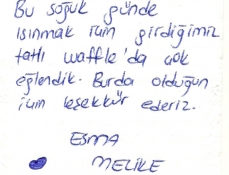 Bu soğuk günde
ısınmak için girdiğimiz
tatlı waffle'da çok
eğlendik. Burda olduğun
için teşekkür ederiz.
ESMA
MELİKE